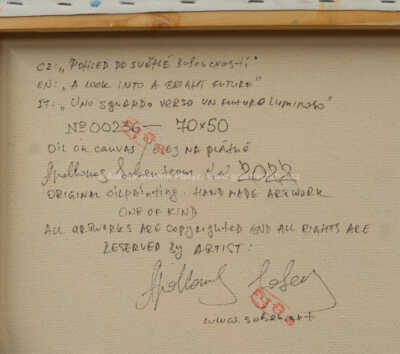 CZ: „POHLED DO SVĚTLÉ BUDOUCNOSTI"
EN: „A LOOK INTO A BRIGHT FUTURE"
IT: „UNO SGUARDO VERSO UN FUTURO LUMINOSO"
Nº 00236 — 70x50
OIL ON CANVAS / OLEJ NA PLÁTNĚ
2022
ORIGINAL OILPAINTING. HAND MADE ARTWORK
ONE OF KIND
ALL ARTWORKS ARE COPYRIGHTED END ALL RIGHTS ARE
RESERVED BY ARTIST: